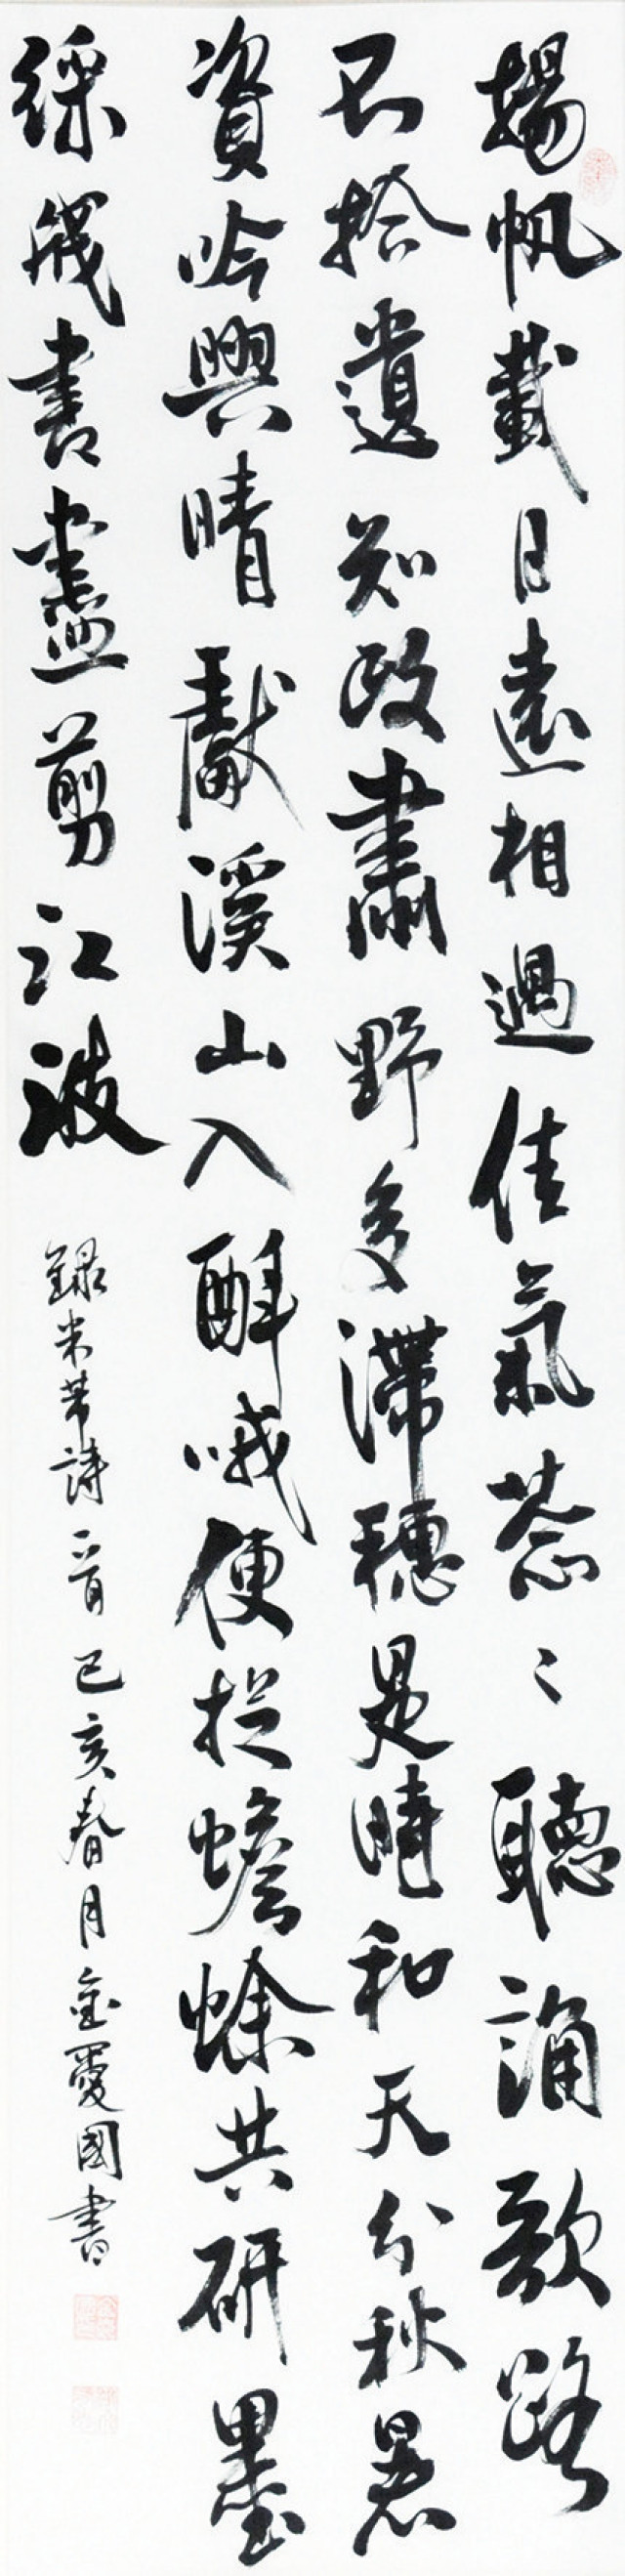 揚帆載月遠相過佳氣葱〻聽誦歌路
不拾遺知政肅野多滯穗是時和天分秋暑
資吟興晴獻溪山入醉哦便捉蟾蜍共研墨
綵牋書盡剪江波 錄米芾詩一首 己亥春月金愛國書